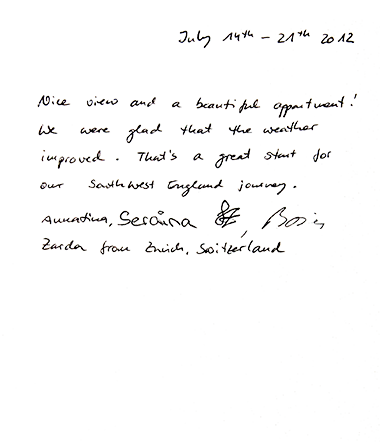 July 14th - 21th 2012
Nice view and a beautiful appartment!
We were glad that the weather
improved. That's a great start for
our Southwest England journey.
Annatina, Seraina, Boris
Zarda from Zürich, Switzerland